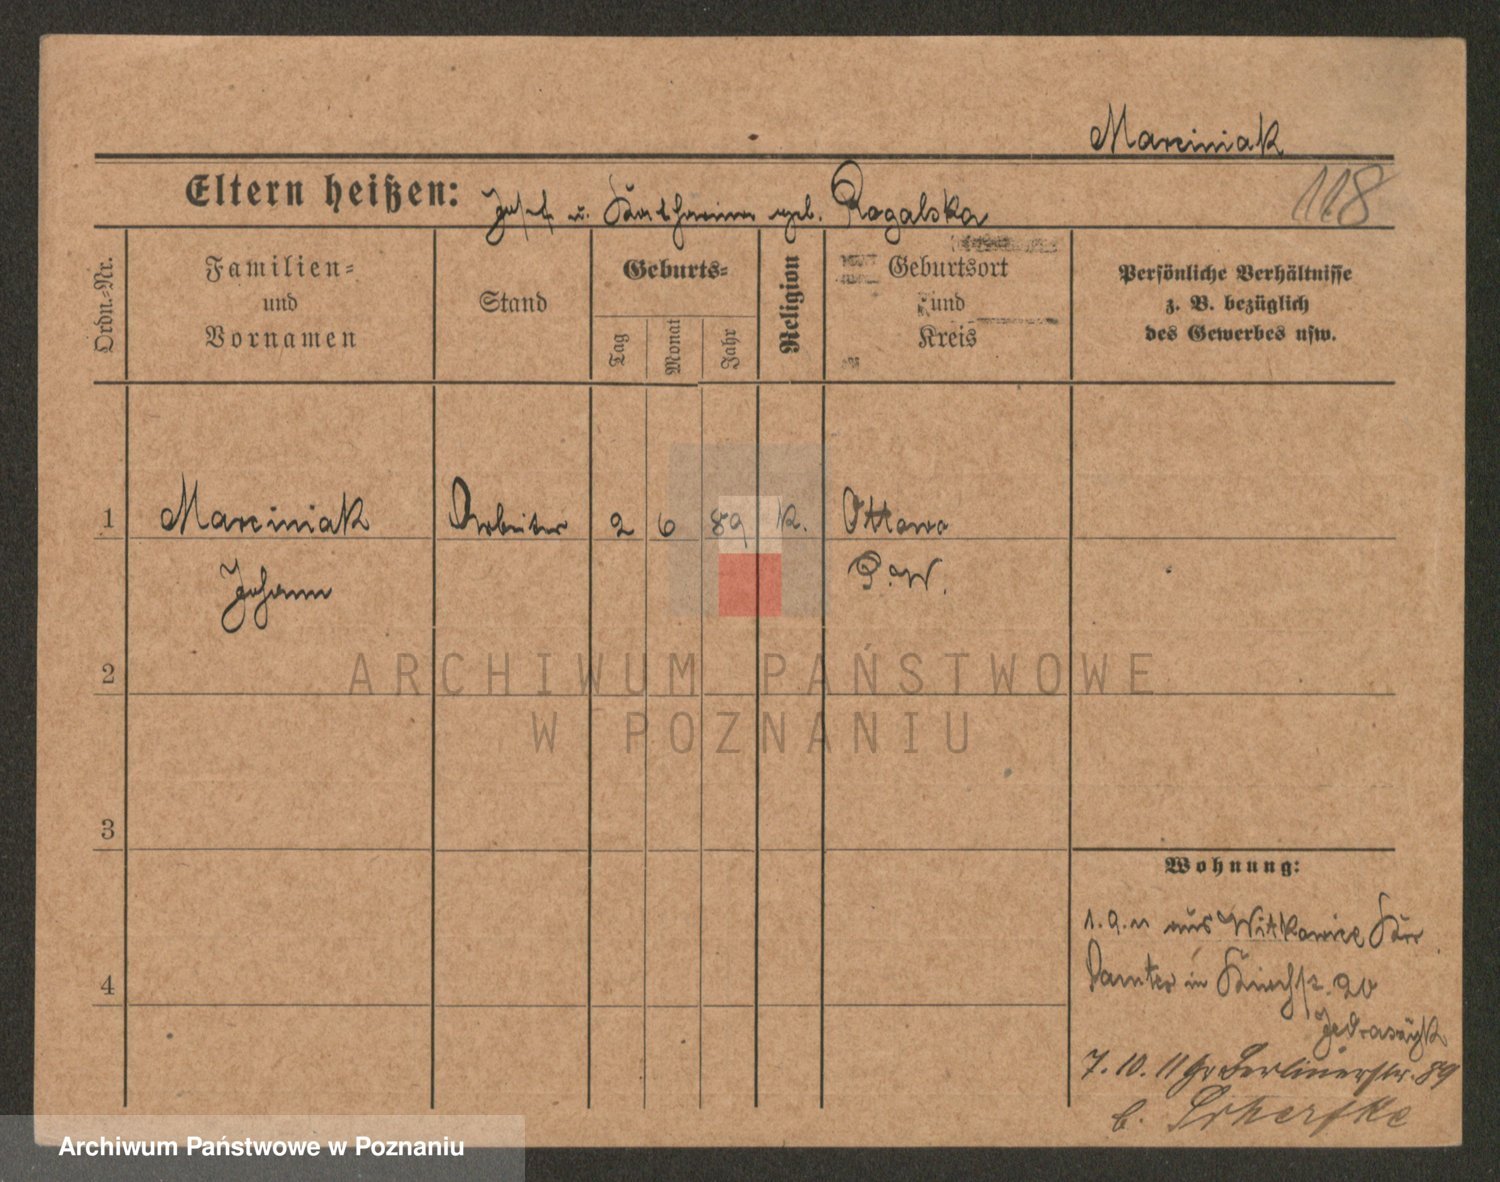 Marciniak
118
Eltern heißen: Josef u. Katharina geb. Rogalska
Ordn.-Nr.
Familien-
und
Vornamen
Stand
Geburts-
Tag
Monat
Jahr
Religion
Geburtsort
und
Kreis
Persönliche Verhältnisse
z. B. bezüglich
des Gewerbes usw.
1 Marciniak Arbeiter 2 6 89 k.
Johann P. W.
2
3
4
Wohnung:
1. 9. 11 aus Witkowice Kr
Samter in 20
7. 10. 11 Gr Berlinerstr. 89
b.
ARCHIWUM PAŃSTWOWE
W POZNANIU
Archiwum Państwowe w Poznaniu